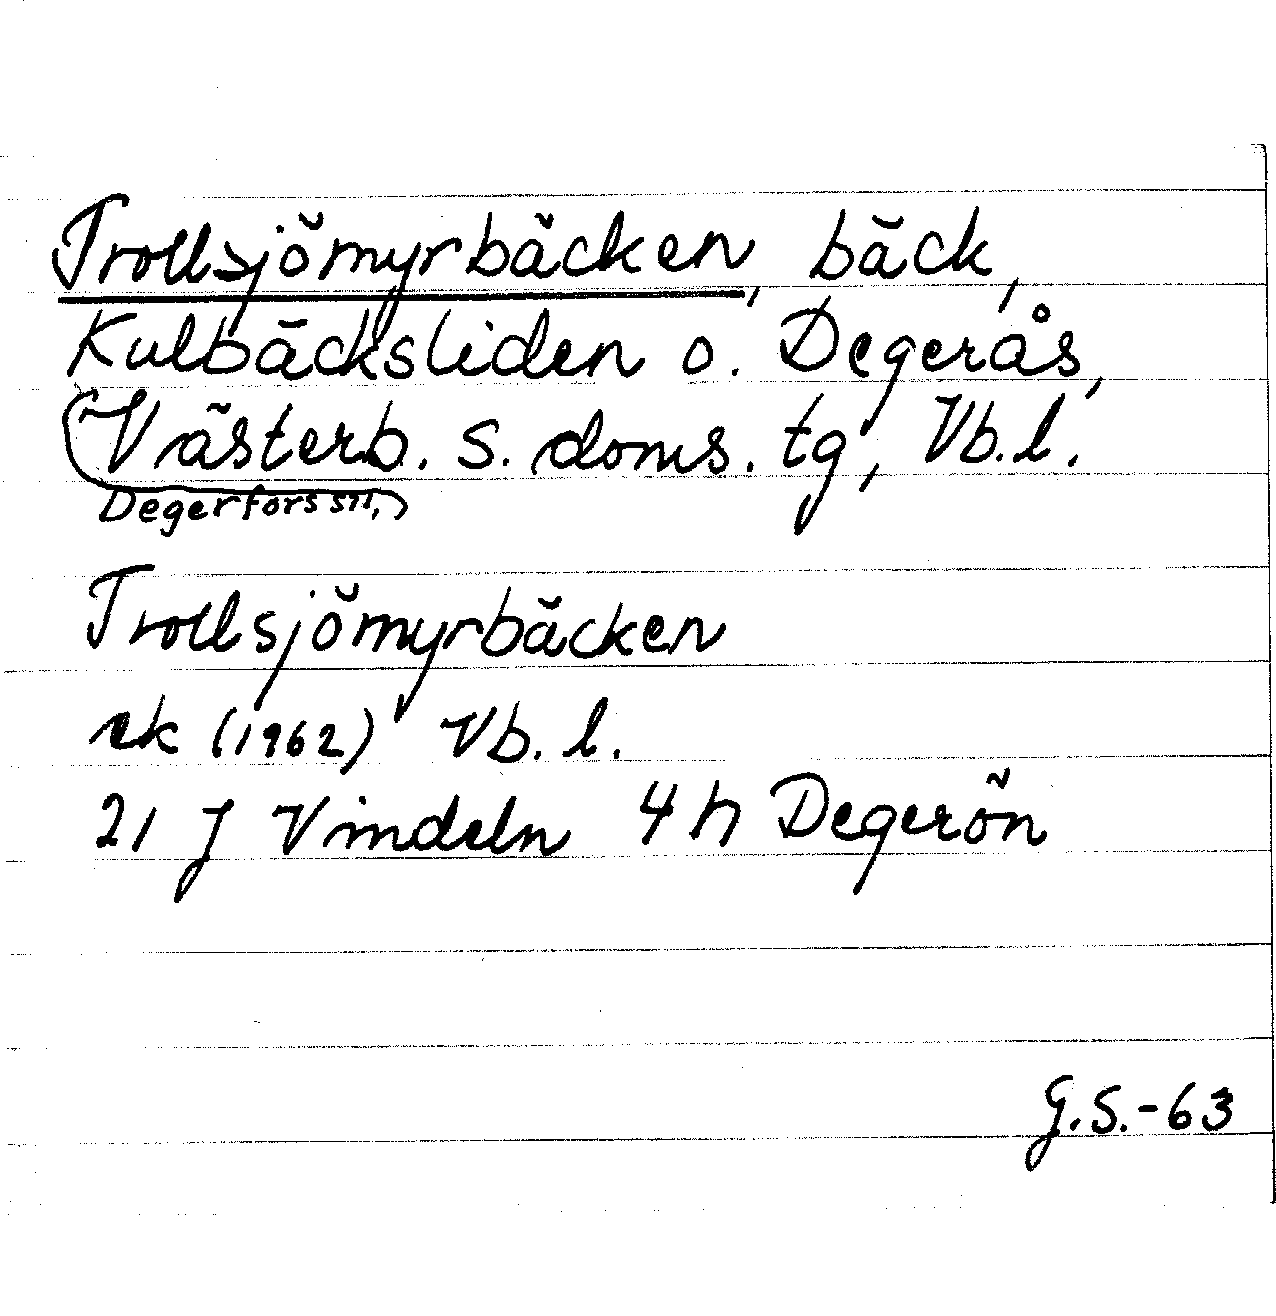 Trollsjömyrbäcken, bäck,
Kulbäcksliden o. Degerås,
(Västerb. s. doms. tg, Vb. l.
Degerfors sn,)
Trollsjömyrbäcken
ek (1962) Vb. l.
21 J Vindeln 4 h Degerön
G.S.-63